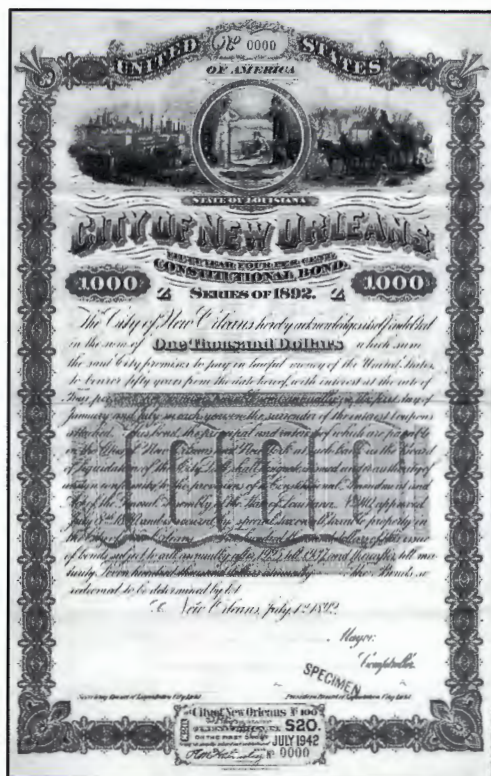 UNITED STATES
No 0000
OF AMERICA
STATE OF LOUISIANA
CITY OF NEW ORLEANS
FIFTY YEAR FOUR PER CENT
CONSTITUTIONAL BOND.
1000 SERIES OF 1892. 1000
The City of New Orleans hereby acknowledges itself indebted
in the sum of One Thousand Dollars which sum
the said City promises to pay in lawful money of the United States,
to bearer fifty years from the date hereof, with interest at the rate of
Four per cent per annum payable semi-annually on the first day of
January and July in each year on the surrender of the interest coupons
attached. This bond, the principal and interest of which are payable
in the City of New Orleans and New York at such bank as the Board
of Liquidation of the City Debt shall
in conformity to the provisions of a Constitutional Amendment and
Act of the General Assembly of the State of Louisiana No 110 approved
July 1890 and is secured by special tax on all taxable property in
the City of New Orleans
of bonds subject to call annually after 1925 till 1937 and thereafter till ma-
turity Seven hundred thousand dollars annually the Bonds so
redeemed to be determined by lot.
New Orleans, July 1st 1892.
Mayor.
Comptroller
SPECIMEN
City of New Orleans No 100
$20.
ON THE FIRST DAY OF
JULY 1942
No 0000